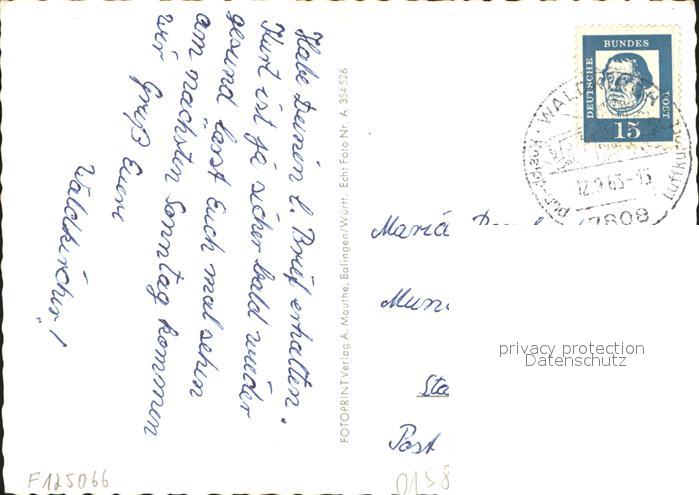 Habe Deinen l. Brief erhalten.
Kurt ist ja sicher bald wieder
gesund lasst Euch mal sehn
am nächsten Sonntag kommen
wir Gruß Eure
Waldkircher!
FOTOPRINT Verlag A. Mauthe, Balingen/Württ. Echt Foto Nr. A 354 526
DEUTSCHE
BUNDES
POST
15
12.9.63-15
Maria
Post
privacy protection
Datenschutz
F125066